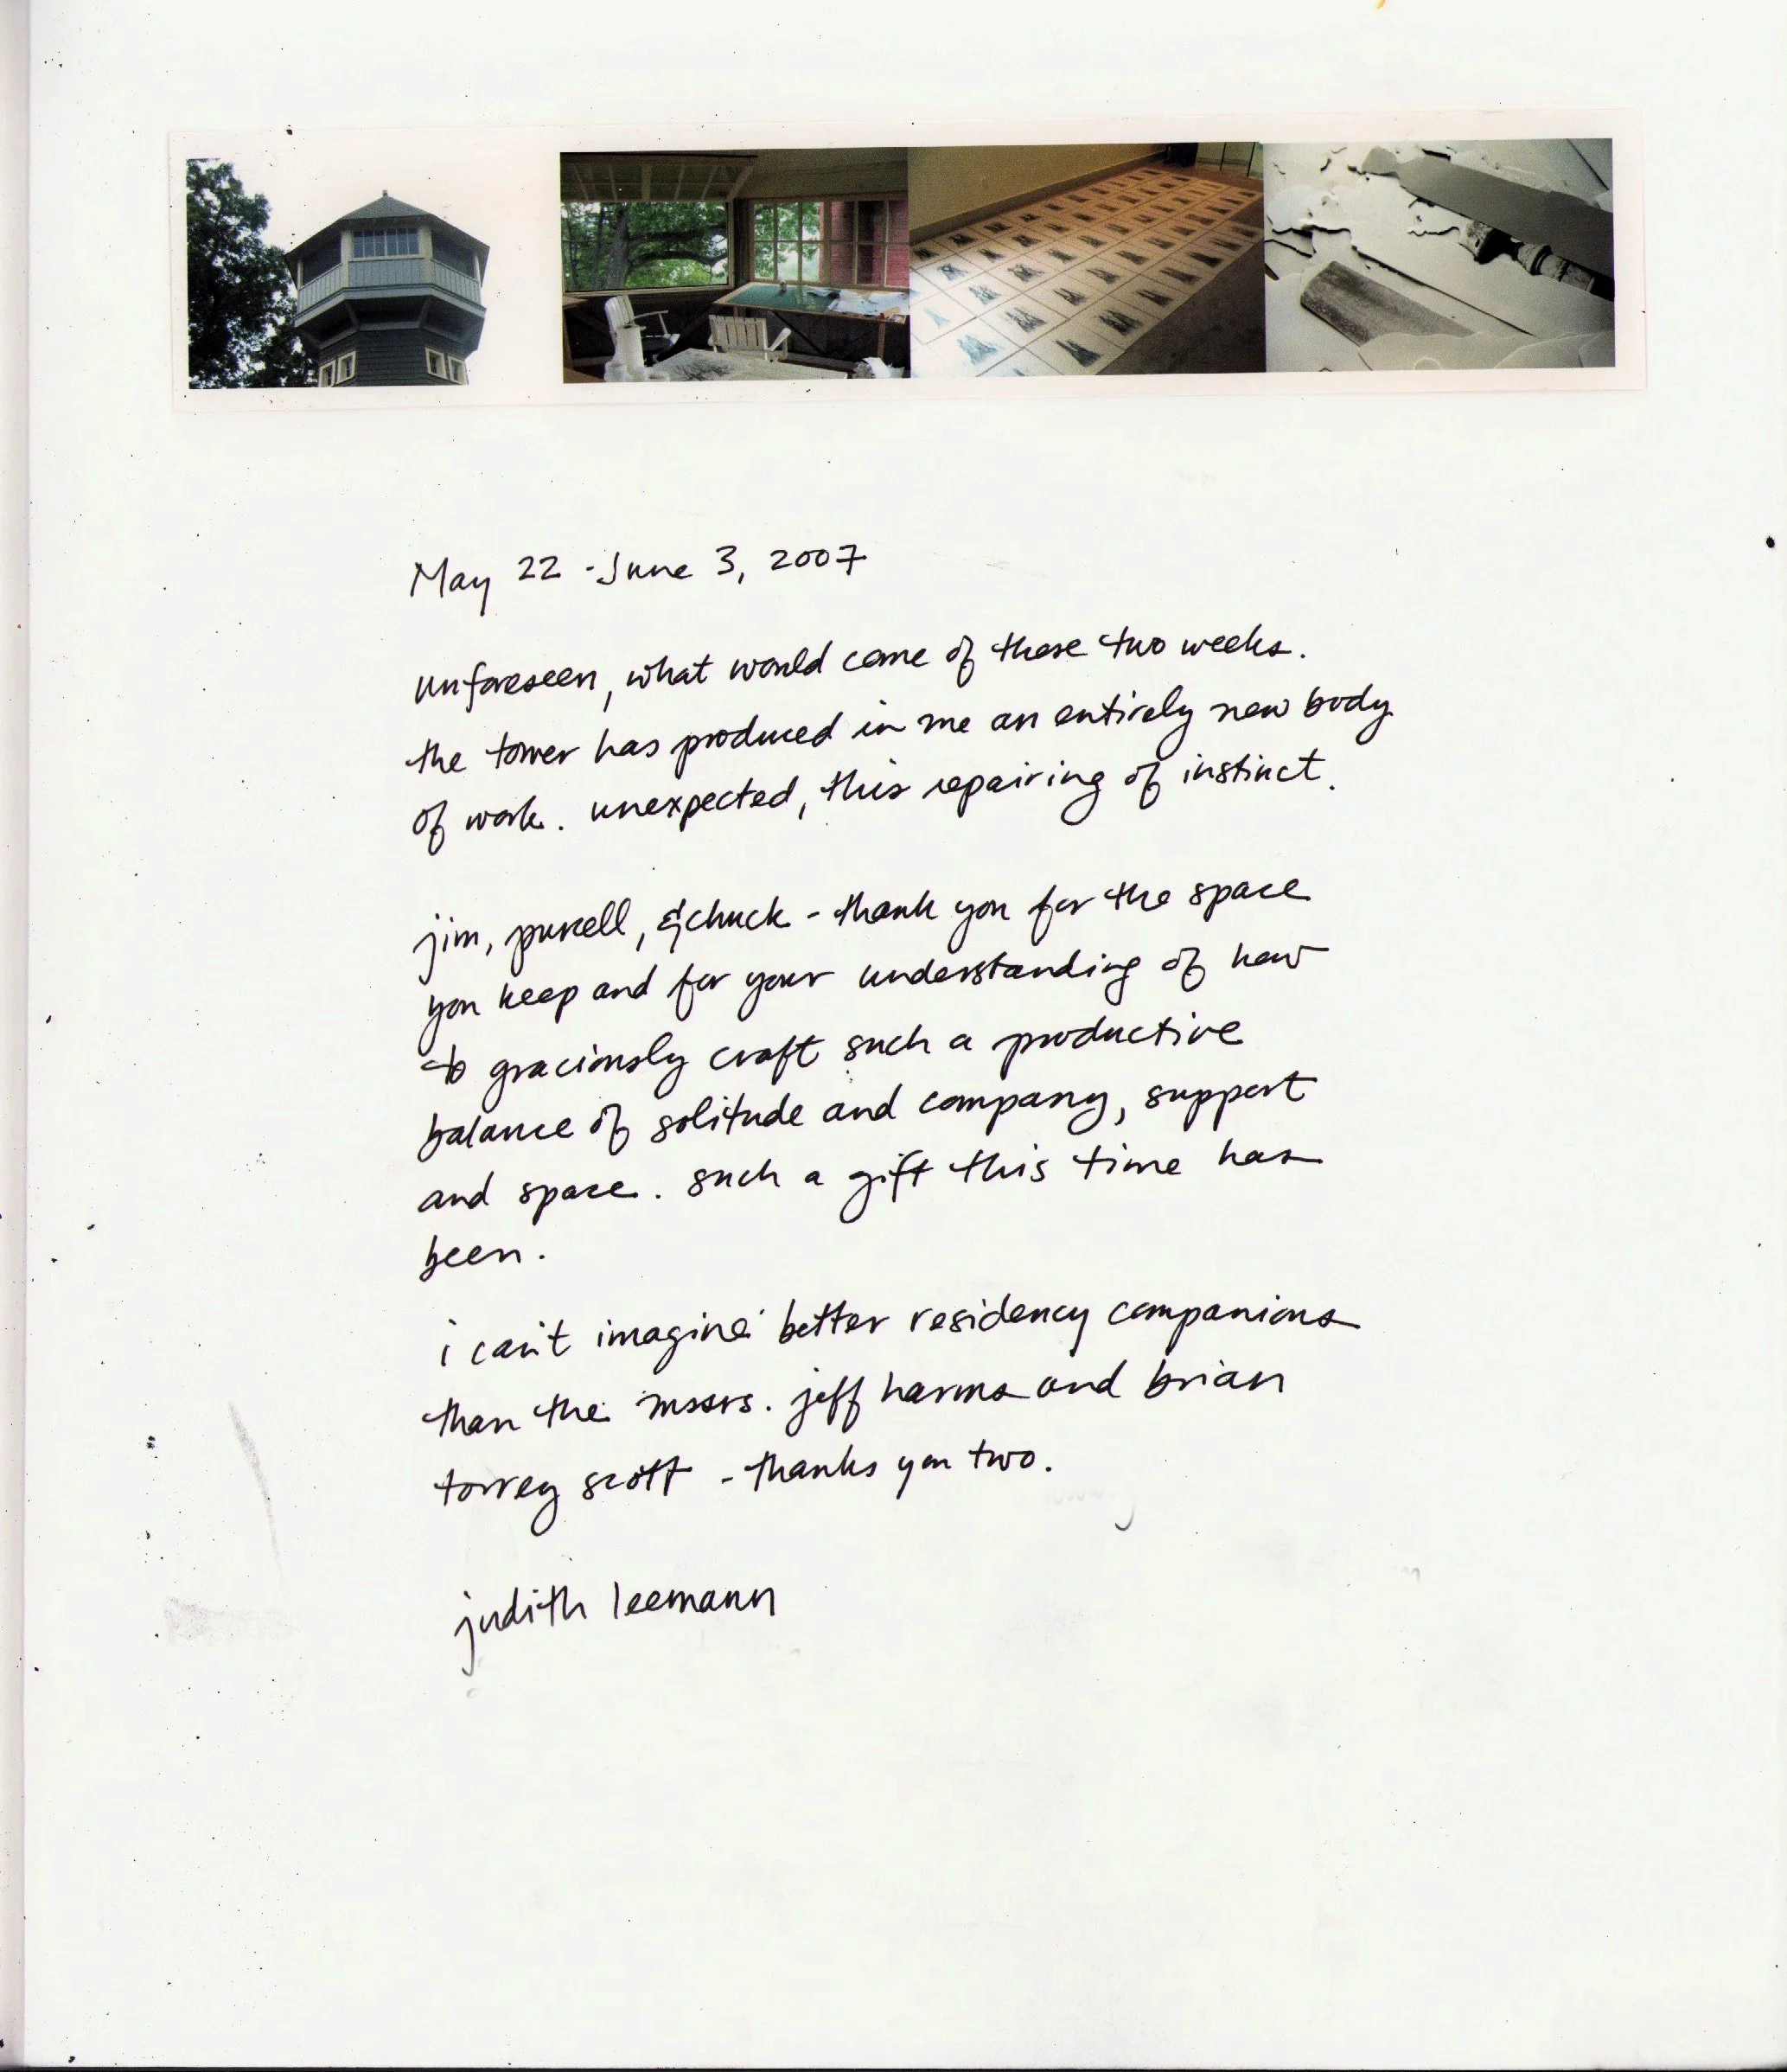 May 22 - June 3, 2007
unforeseen, what would come of these two weeks.
the tower has produced in me an entirely new body
of work. unexpected, this repairing of instinct.
jim, purcell, & chuck - thank you for the space
you keep and for your understanding of how
to graciously craft such a productive
balance of solitude and company, support
and space. such a gift this time has
been.
i can't imagine better residency companions
than the mssrs. jeff harms and brian
torrey scott - thanks you two.
judith leemann